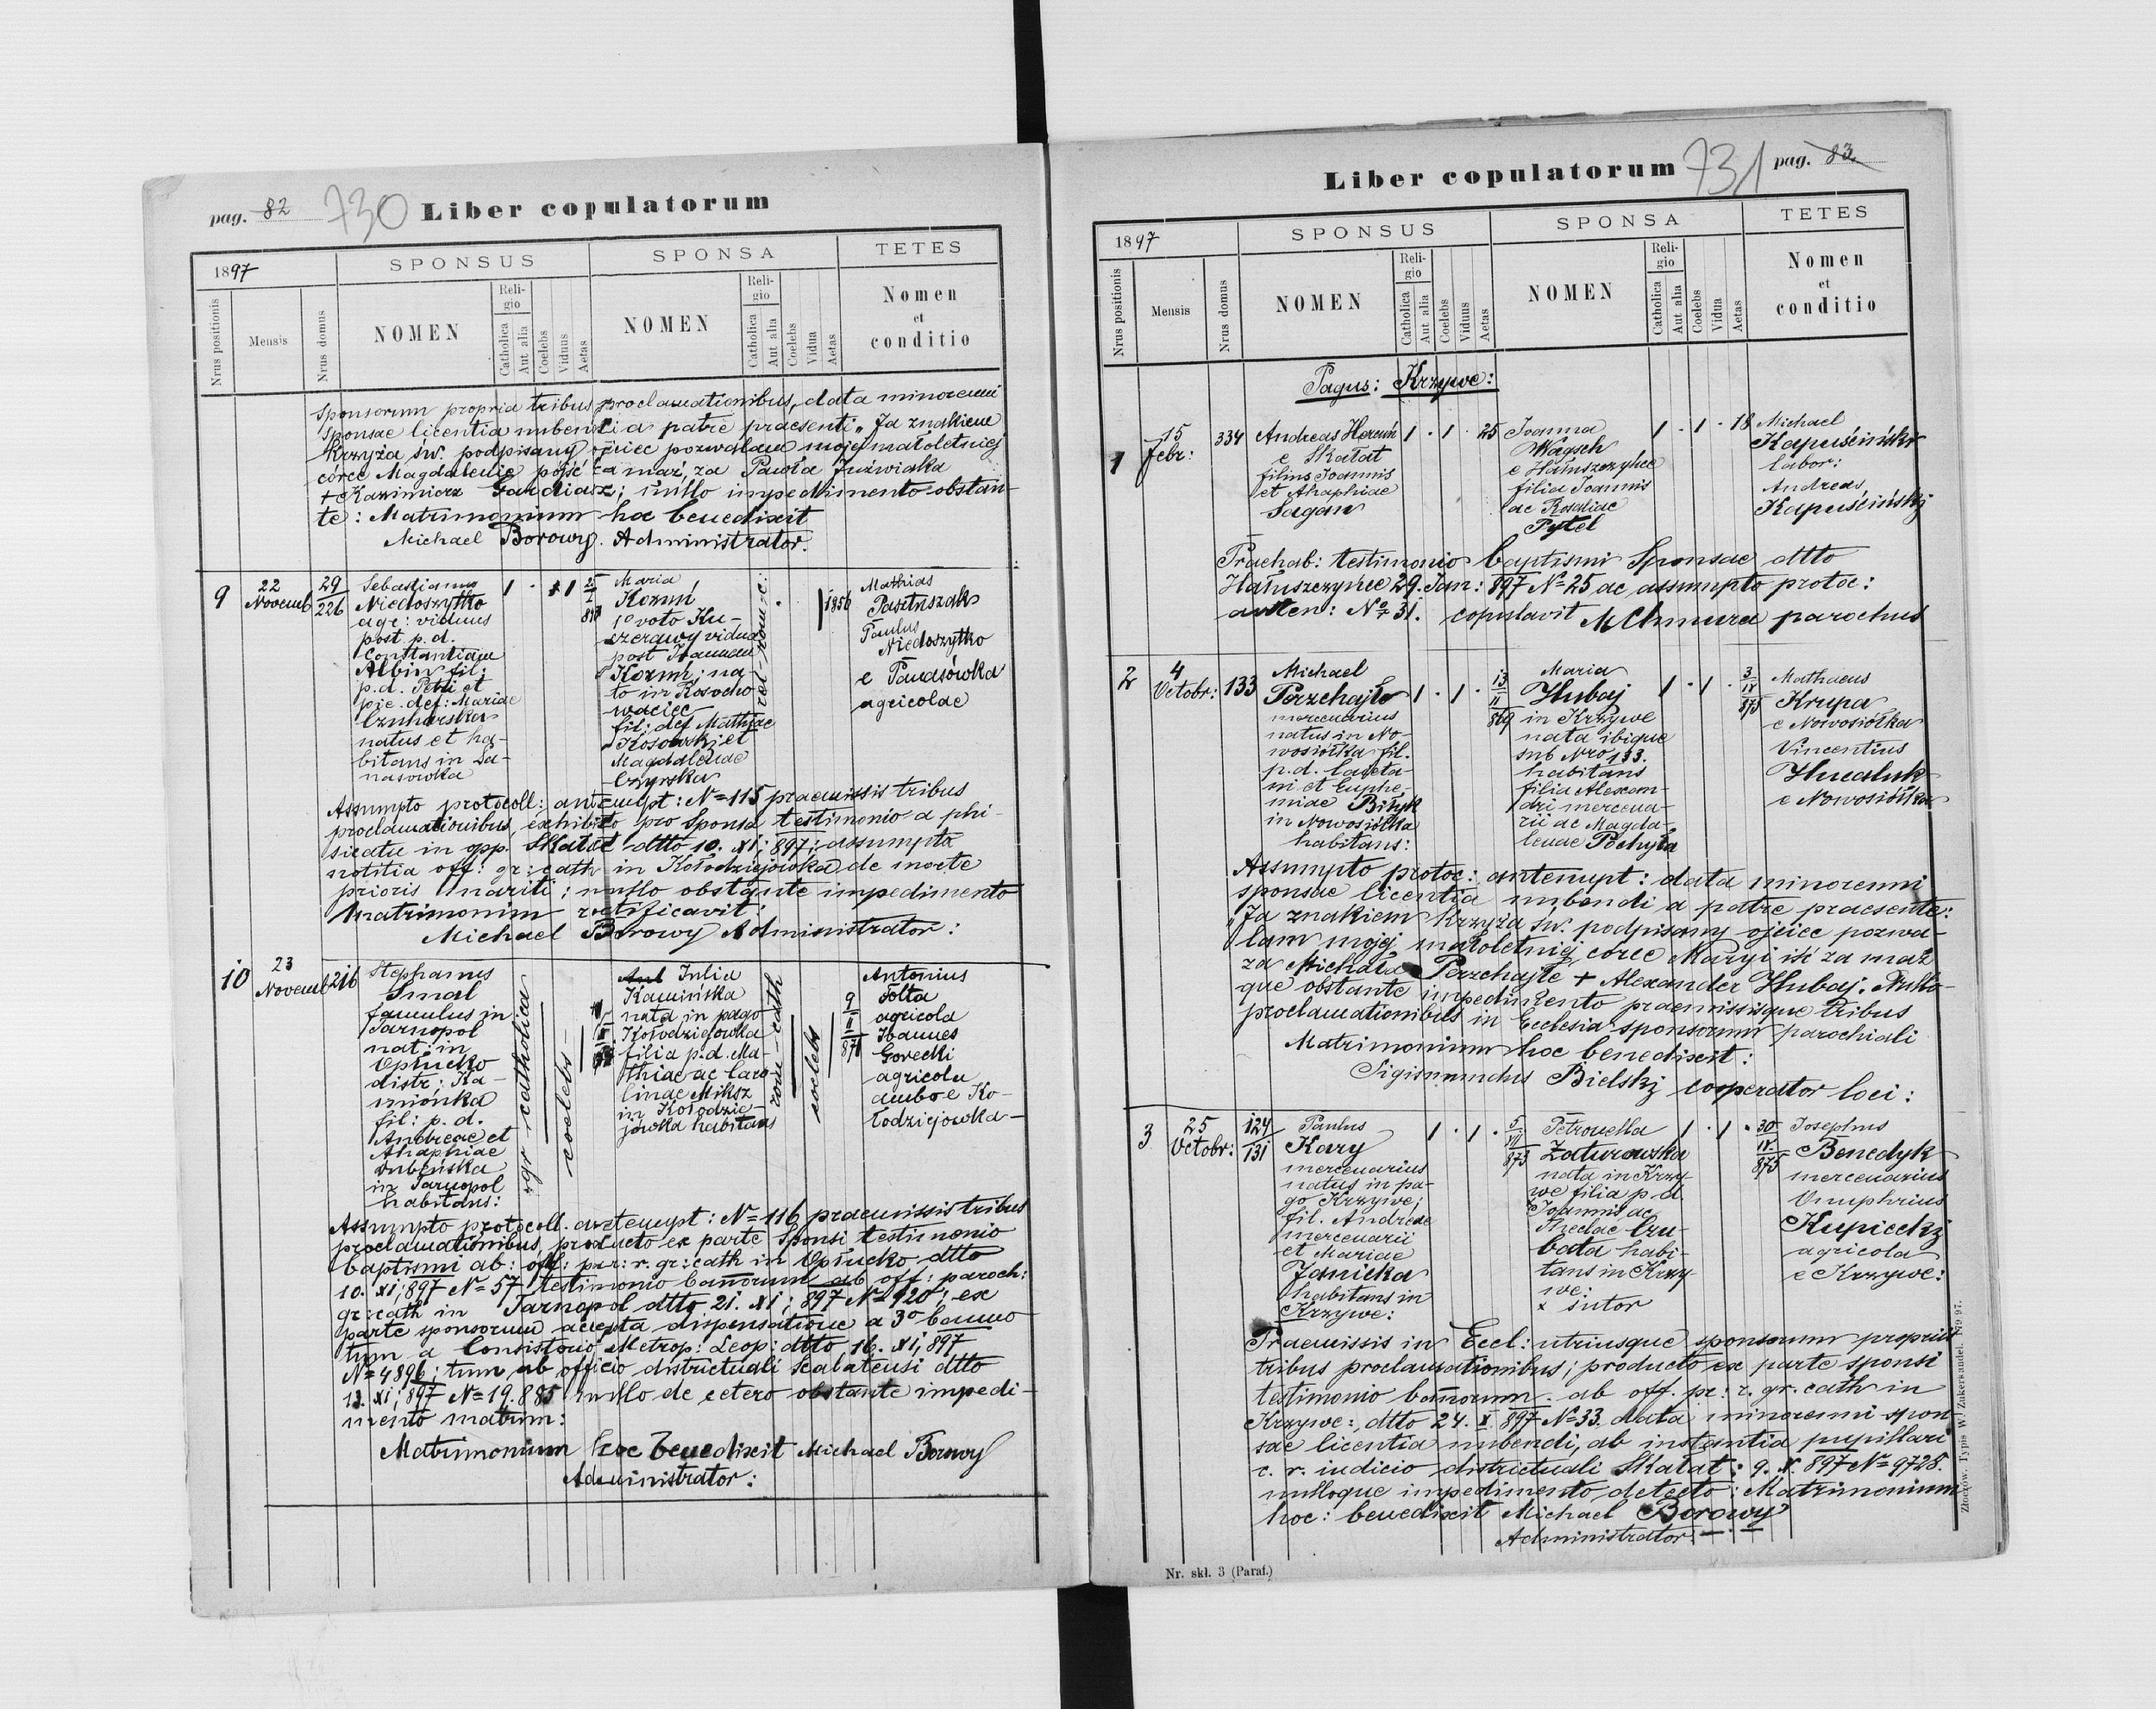 pag. 82 730 Liber copulatorum
1897 SPONSUS SPONSA TETES
Nrus positionis Mensis Nrus domus NOMEN Religio Catholica Aut alia Coelebs Viduus Aetas NOMEN Religio Catholica Aut alia Coelebs Vidua Aetas Nomen et conditio
sponsorum propria tribus proclamationibus, data minorenni
sponsae licentia nubendi a patre praesenti „Ja znakiem
Krzyża św. podpisany ojciec pozwalam mojej małoletniej
córce Magdalenie pójść za mąż, za Pawła Juźwiaka
+ Kazimierz Gardiasz; nullo impedimento obstan-
te: Matrimonium hoc benedixit
Michael Borowy. Administrator.
9
22
Novemb
29
226
Sebastianus
Niedoszytko
agr: viduus
post p. d.
Constantiam
Albin fil:
p.d. Petri et
pie. def: Mariae
Czuharska
natus et ha-
bitans in Pa-
nasowka
1 . 1
Maria
Kozuń
1º voto Ku-
czerawy vidua
post Ioannem
Kozuń; na-
to in Kosocho
waciec
fil: def Mathiae
Kosowski et
Magdalenae
Czyrska
1856
Mathias
Pastuszak
Paulus
Niedoszytko
e Panasówka
agricolae
Assumpto protocoll: antenupt: N=115 praemissis tribus
proclamationibus, exhibito pro Sponsa testimonio a phi-
sicatu in opp. Skałat dtto 10. XI; 897; assumpta
notitia off: gr: cath in Kołodziejówka de morte
prioris mariti; nullo obstante impedimento
Matrimonium ratificavit:
Michael Borowy Administrator:
10
23
Novemb
216
Stephanus
Smal
famulus in
Tarnopol
nat: in
Opłucko
distr: Ka-
mionka
fil: p. d.
Andreae et
Ahaphiae
Dubeńska
in Tarnopol
habitans:
gr catholica
coelebs
Julia
Kamińska
nata in pago
Kołodziejówka
filia p.d. Ma-
thiae ac Caro
linae Miksz
in Kołodzie-
jówka habitans
rom-cath
coelebs
9
II
871
Antonius
Tołta
agricola
Ioannes
Gorecki
agricola
ambo e Ko-
łodziejowka
Assumpto protocoll. antenupt: N=116 praemissis tribus
proclamationibus, producto ex parte Sponsi testimonio
baptismi ab: off: par: r. gr: cath in Opłucko dtto
10. XI; 897 N=57 testimonio bannorum ab off: paroch:
gr: cath in Tarnopol dtto 21. XI; 897 N=920; ex
parte sponsorum accepta dispensatione a 3º banno
tum a Consistorio Metrop: Leop: dtto 16. XI; 897
N=4896; tum ab officio districtuali Scalatensi dtto
13. XI; 897 N=19.885 nullo de cetero obstante impedi-
mento matrim:
Matrimonium hoc benedixit Michael Borowy
Administrator:
Liber copulatorum 731 pag. 83
1897 SPONSUS SPONSA TETES
Nrus positionis Mensis Nrus domus NOMEN Religio Catholica Aut alia Coelebs Viduus Aetas NOMEN Religio Catholica Aut alia Coelebs Vidua Aetas Nomen et conditio
Pagus: Krzywe:
1
15
Febr:
334
Andreas
e Skałat
filius Joannis
et Ahaphiae
Sagan
1 . 1 . 25
Joanna
Wagsch
e Hałuszczyńce
filia Joannis
ac Rosaliae
Pytel
1 . 1 . 18
Michael
Kapuściński
labor:
Andreas
Kapuściński
Prachab: testimonio baptismi Sponsae dtto
Hałuszczyńce 29. Jan: 897 N=25 ac assumpto protoc:
anten: No 31. copulavit MChmura parochus
2
4
Octobr:
133
Michael
Perzchajło
mercenarius
natus in No-
wosiółka fil.
p.d. Cajeta-
ni et Euphe-
miae Bihyk
in Nowosiółka
habitans:
1 . 1 .
13
II
869
Maria
Hubaj
in Krzywe
nata ibique
sub Nro 133.
habitans
filia Alexan-
dri mercena-
rii ac Magda-
lenae Pochyła
1 . 1 .
3
IV
875
Mathaeus
Krupa
e Nowosiółka
Vincentius
Huculuk
e Nowosiółka
Assumpto protoc: antenupt: data minorenni
sponsae licentia nubendi a patre praesente:
„Ja znakiem Krzyża św. podpisany ojciec pozwa-
lam mojej małoletniej córce Maryi iść za mąż
za Michała Perzchajłę + Alexander Hubaj. Nullo-
que obstante impedimento praemissisque tribus
proclamationibus in Ecclesia sponsorum parochiali
Matrimonium hoc benedixit:
Sigismundus Bielski cooperator loci:
3
25
Octobr:
124
131
Paulus
Kary
mercenarius
natus in pa-
go Krzywe;
fil. Andreae
mercenarii
et Mariae
Janicka
habitans in
Krzywe:
1 . 1 .
5
VII
873
Petronella
Zaturowska
nata in Krzy-
we filia p. d.
x Joannis ac
Theclae Czu-
bata habi-
tans in Krzy-
we:
x sutor
1 . 1 .
30
IV.
875
Josephus
Benedyk
mercenarius
Onuphrius
Kupiecki
agricola
e Krzywe:
Praemissis in Eccl: utriusque sponsorum propria
tribus proclamationibus; producto ex parte sponsi
testimonio bannorum ab off. pr: r. gr. cath in
Krzywe: dtto 24. X. 897 N=33. data minorenni spon-
sae licentia nubendi, ab instantia pupillari
c. r. iudicio districtuali Skałat: 9. X. 897 N=9728.
nulloque impedimento detecto: Matrimonium
hoc: benedixit Michael Borowy
Administrator.
Nr. skł. 3 (Paraf.)
Złoczów. Typis W. Zukerkandel. 97.